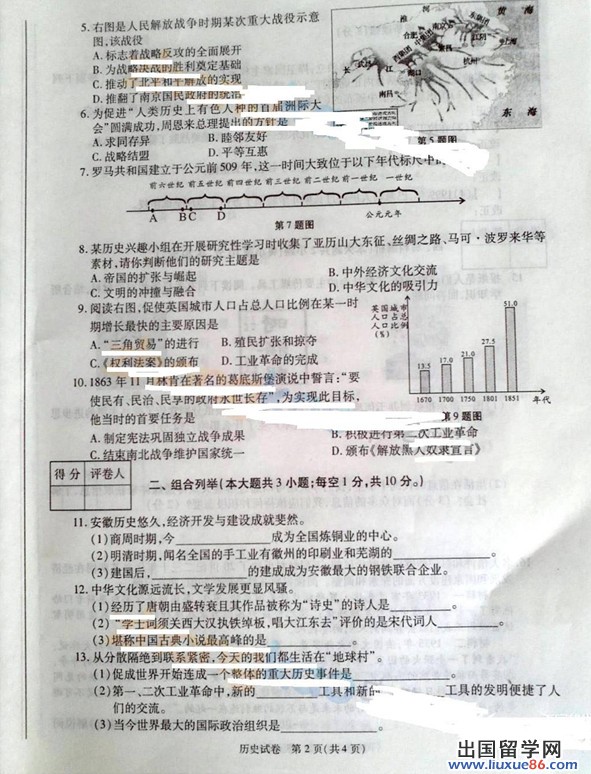 5. 右图是人民解放战争时期某次重大战役示意
图,该战役
A. 标志着战略反攻的全面展开
B. 为战略决战的胜利奠定基础
C. 推动了北平和平解放的实现
D. 推翻了南京国民政府的统治
黄 海
淮 河
合肥
上海
杭州
长
江
南昌
东 海
第5题图
6. 为促进“人类历史上有色人种的首届洲际大
会”圆满成功,周恩来总理提出的方针是
A. 求同存异 B. 睦邻友好
C. 战略结盟 D. 平等互惠
7. 罗马共和国建立于公元前509年,这一时间大致位于以下年代标尺中的
前六世纪 前五世纪 前四世纪 前三世纪 前二世纪 前一世纪 一世纪
A B C D 公元元年
第7题图
8. 某历史兴趣小组在开展研究性学习时收集了亚历山大东征、丝绸之路、马可·波罗来华等
素材,请你判断他们的研究主题是
A. 帝国的扩张与崛起 B. 中外经济文化交流
C. 文明的冲撞与融合 D. 中华文化的吸引力
9. 阅读右图,促使英国城市人口占总人口比例在某一时
期增长最快的主要原因是
A. “三角贸易”的进行 B. 殖民扩张和掠夺
C. 《权利法案》的颁布 D. 工业革命的完成
英国城市
人口占总
人口比例
(%)
13.5 17.0 21.0 27.5 51.0
1670 1700 1750 1801 1851 年代
第9题图
10. 1863年11月林肯在著名的葛底斯堡演说中誓言:“要
使民有、民治、民享的政府永世长存”,为实现此目标,
他当时的首要任务是
A. 制定宪法巩固独立战争成果 B. 积极进行第二次工业革命
C. 结束南北战争维护国家统一 D. 颁布《解放黑人奴隶宣言》
得分 评卷人
二、组合列举(本大题共3小题;每空1分,共10分。)
11. 安徽历史悠久,经济开发与建设成就斐然。
(1)商周时期,今____________成为全国炼铜业的中心。
(2)明清时期,闻名全国的手工业有徽州的印刷业和芜湖的____________。
(3)建国后,____________的建成成为安徽最大的钢铁联合企业。
12. 中华文化源远流长,文学发展更显风骚。
(1)经历了唐朝由盛转衰且其作品被称为“诗史”的诗人是____________。
(2)“学士词须关西大汉执铁绰板,唱大江东去”评价的是宋代词人____________。
(3)堪称中国古典小说最高峰的是____________。
13. 从分散隔绝到联系紧密,今天的我们都生活在“地球村”。
(1)促成世界开始连成一个整体的重大历史事件是____________。
(2)第一、二次工业革命中,新的________工具和新的________工具的发明便捷了人
们的交流。
(3)当今世界最大的国际政治组织是____________。
历史试卷 第2页(共4页)
出国留学网
www.liuxue86.com